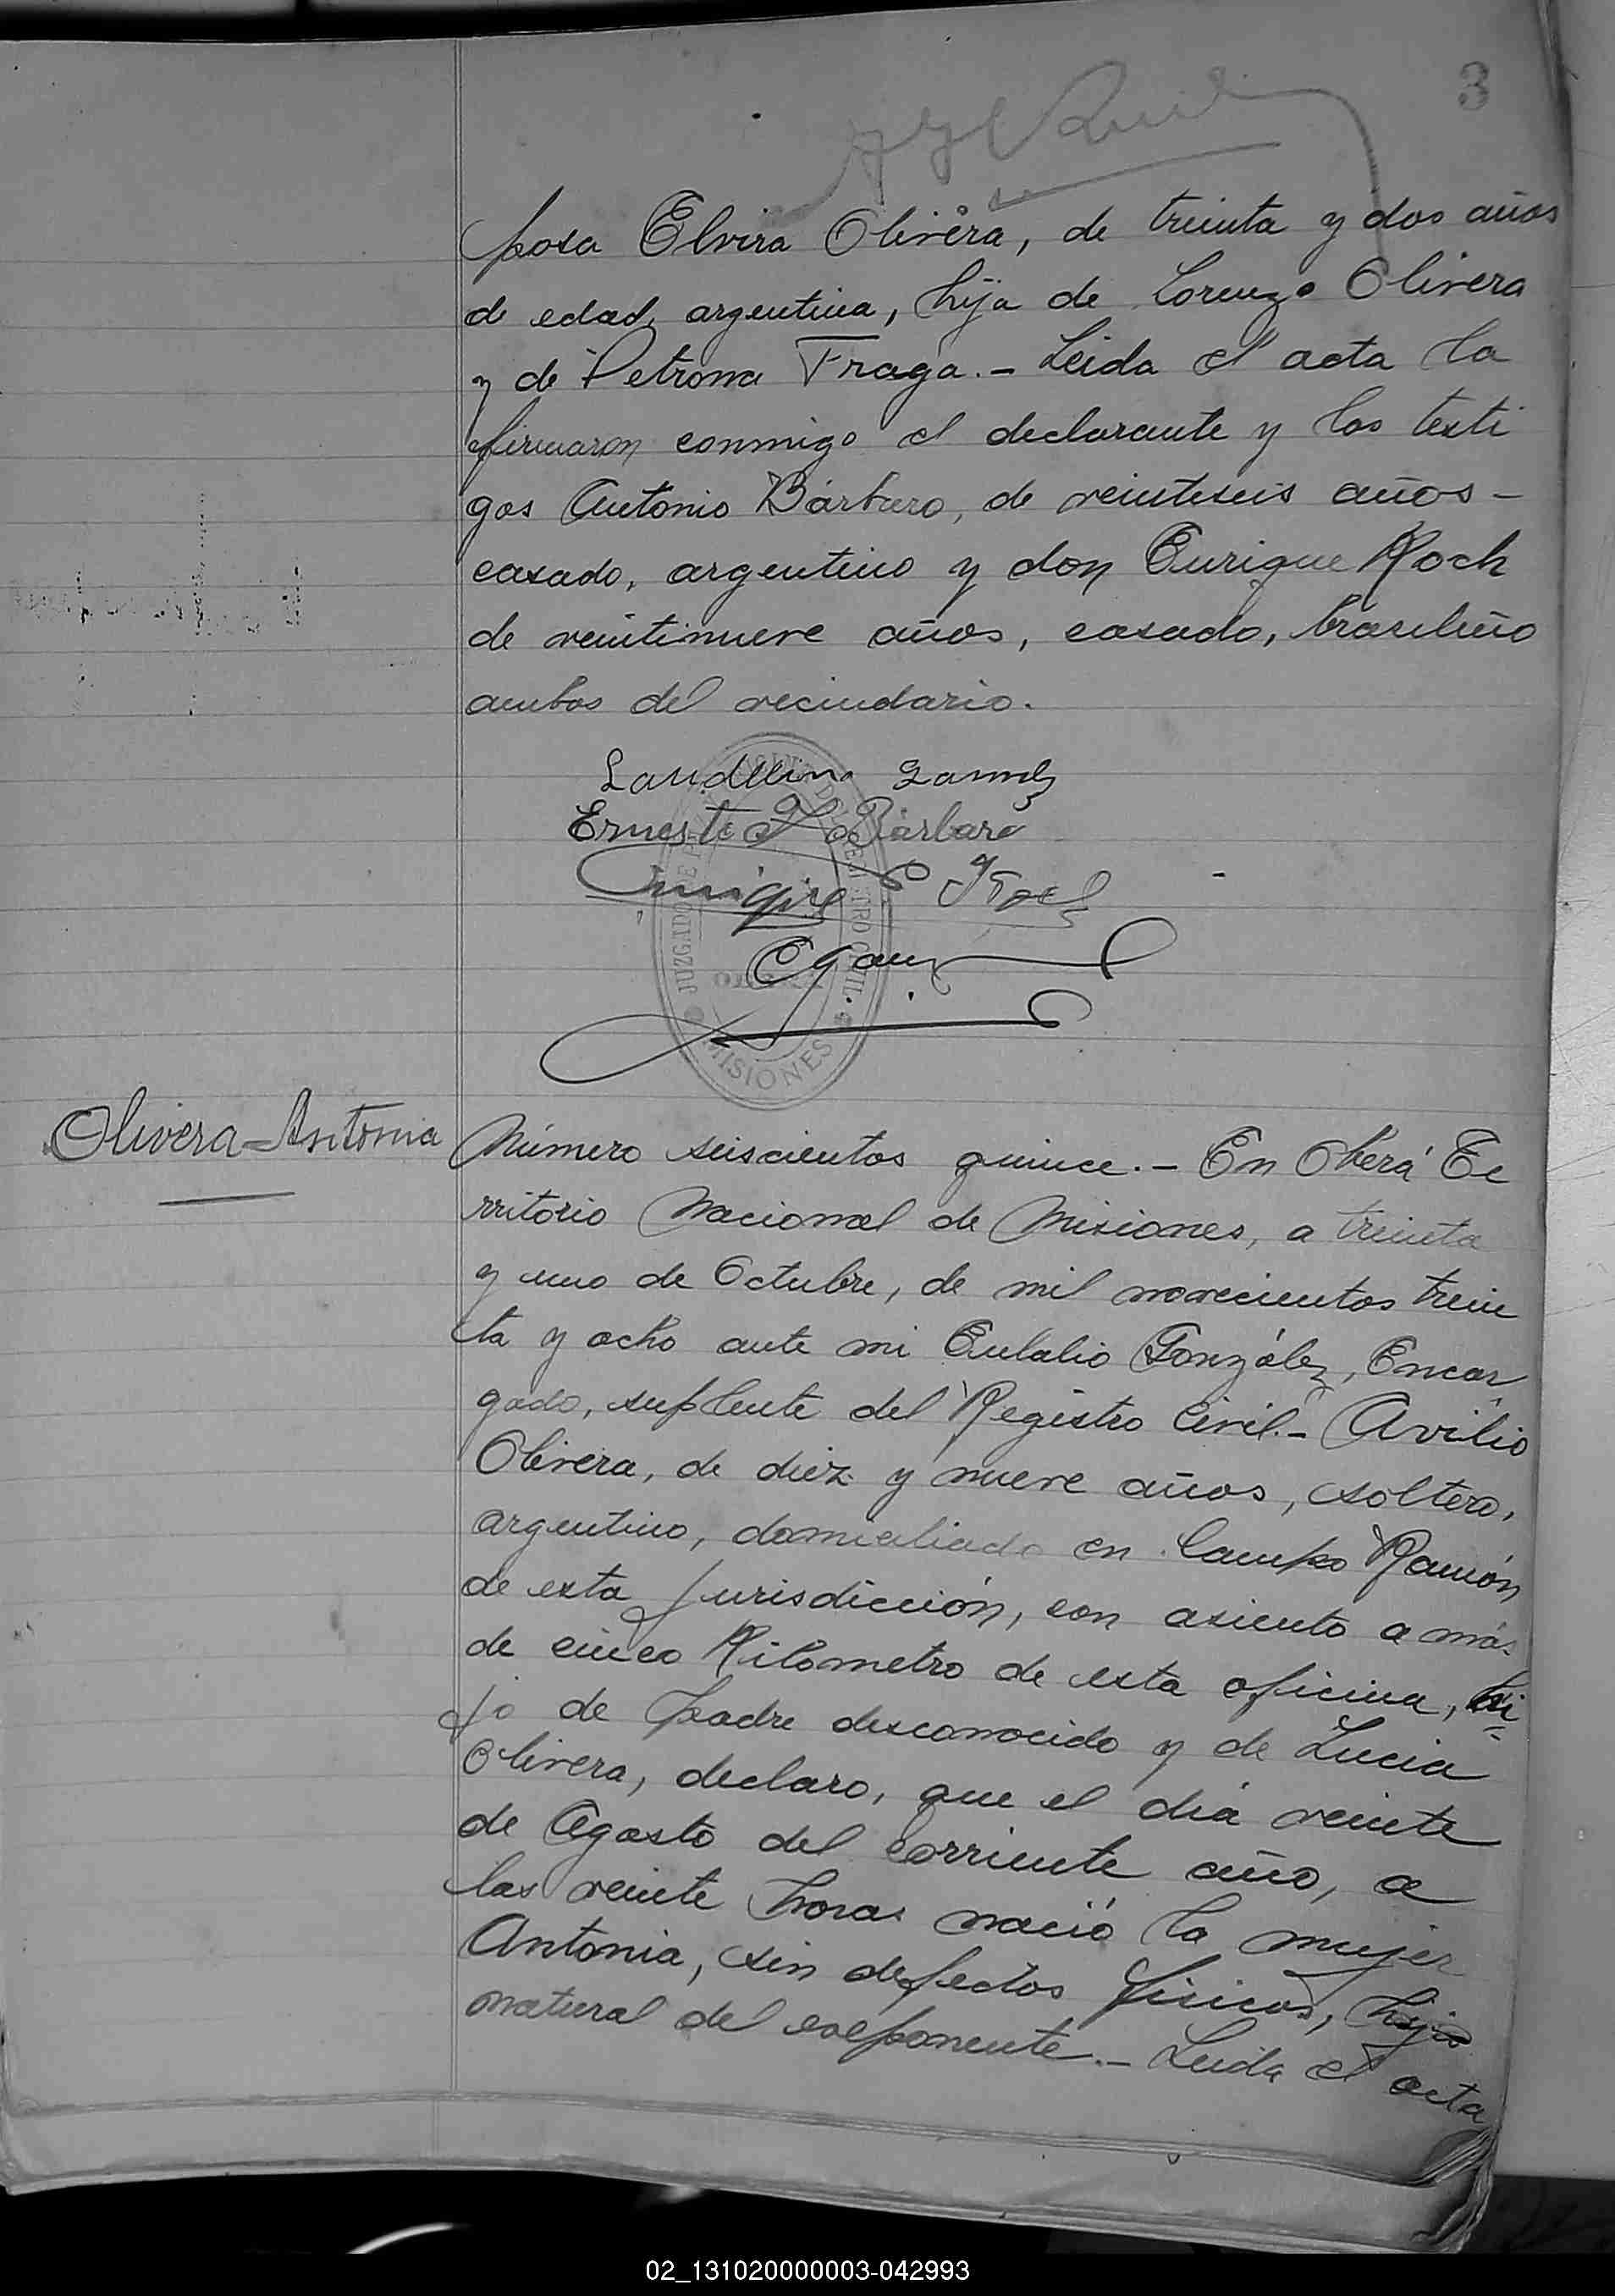 3
posa Elvira Olivera, de treinta y dos años
de edad, argentina, hija de Lorenzo Olivera
y de Petrona Fraga.- Leida el acta la
firmaron conmigo el declarante y los testi
gos Antonio Bárbaro, de veinteseis años -
casado, argentino y don Enrique Koch
de veintinueve años, casado, brasileño
ambos del vecindario.
Ernesto Bárbaro
Enrique Koch
JUZGADO DE REGISTRO CIVIL
MISIONES
Olivera=Antonia
Número seiscientos quince.- En Oberá Te
rritorio Nacional de Misiones, a treinta
y uno de Octubre, de mil novecientos trein
ta y ocho ante mi Eulalio González, Encar
gado, suplente del Registro Civil.- Avilio
Olivera, de diez y nueve años, soltero,
argentino, domiciliado en Campo Ramón
de esta jurisdicción, con asiento a más
de cinco Kilometro de esta oficina, hi-
jo de padre desconocido y de Lucia
Olivera, declaro, que el dia veinte
de Agosto del corriente año, a
las veinte horas nació la mujer
Antonia, sin defectos fisicos, hija
natural del exponente.- Leida el acta
02_131020000003-042993